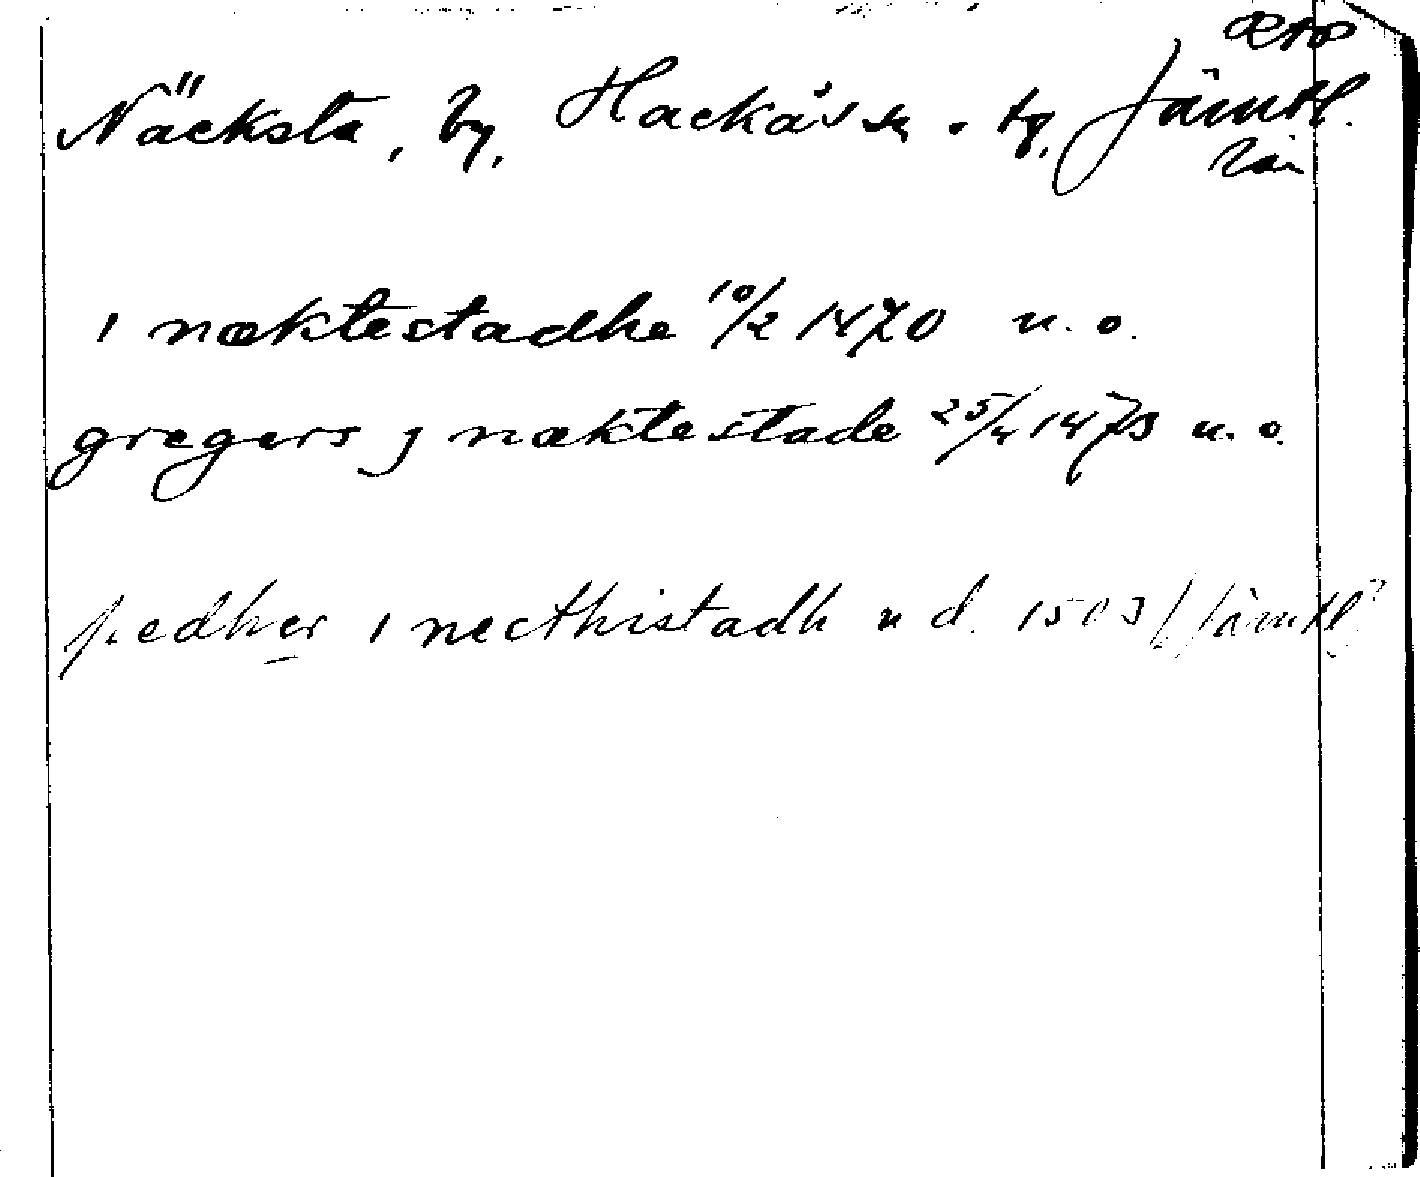 Näcksta, by, Hackås sn o tg, Jämtl.
län
ı næktestadhe 10/2 1470 u. o.
gregers j næktestade 25/4 1473 u. o.
pedher ı necthistadh u d. 1503 Jämtl